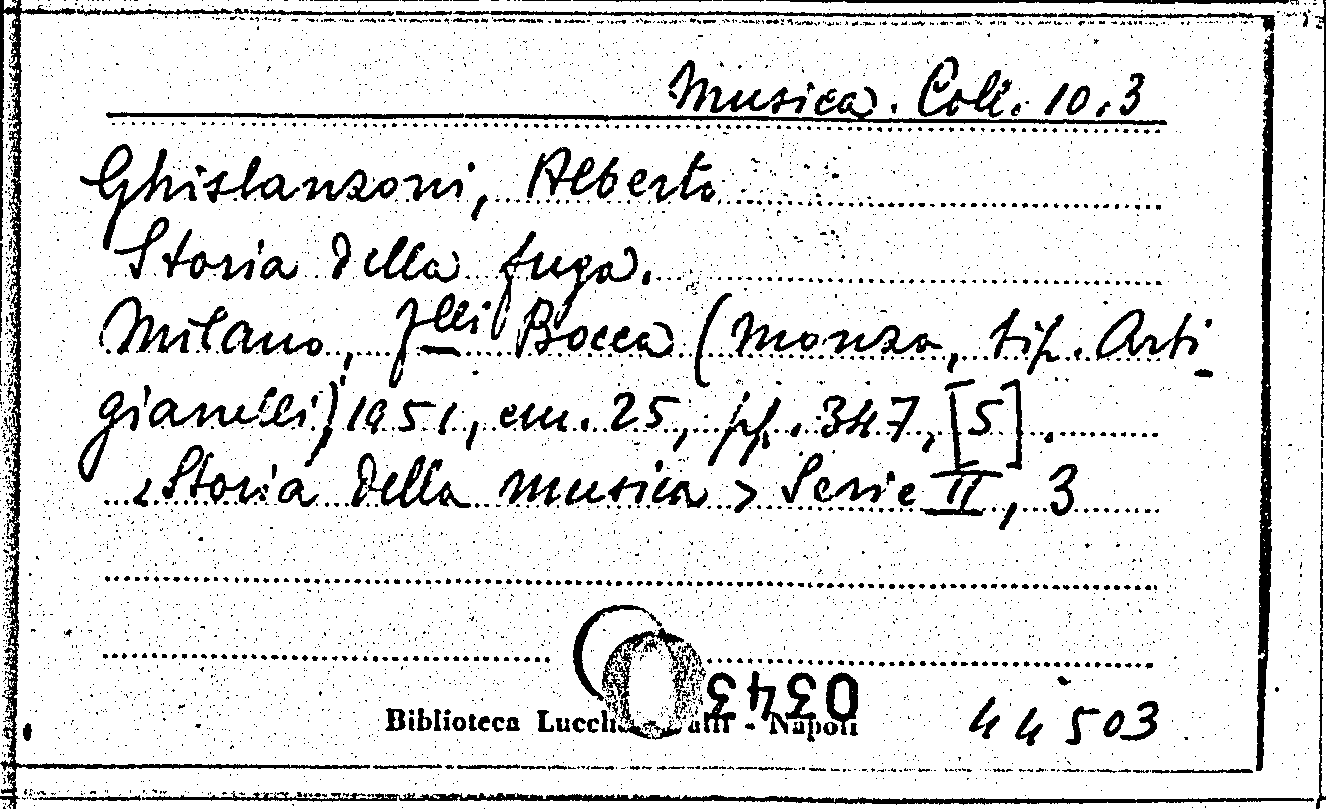 Musica. Coll. 10.3
Ghislanzoni, Alberto
Storia della fuga.
Milano, F.lli Bocca (Monza, tip. Arti-
gianelli) 1951, cm. 25, pp. 347, [5].
<Storia della musica> Serie II, 3
0343
Biblioteca - Napoli
44503